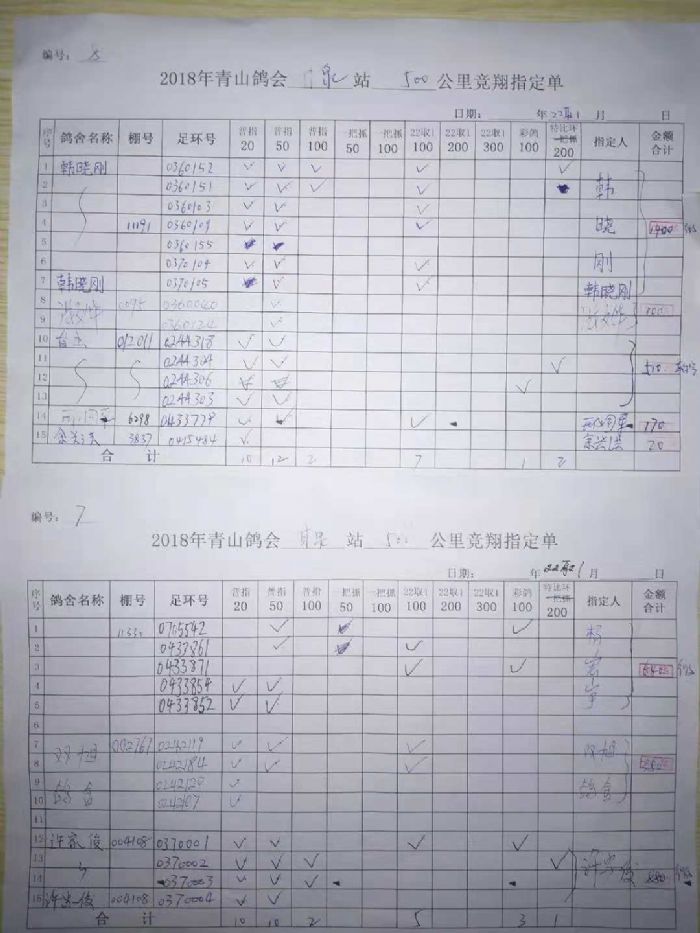 编号: 8
2018年青山鸽会 站 500 公里竞翔指定单
日期: 年 22取1 月 日
序号 鸽舍名称 棚号 足环号 普指20 普指50 普指100 一把抓50 一把抓100 22取1 100 22取1 200 22取1 300 彩鸽100 特比环 一把抓 200 指定人 金额合计
1 韩晓刚 0360152 ✓ ✓ ✓ ✓ ✓
2 0360151 ✓ ✓ ✓ ✓ 韩
3 0360103 ✓ ✓ ✓
4 11191 0360109 ✓ ✓ ✓ 晓 1400
5 0360155
6 0370104 ✓ ✓ ✓ 刚
7 韩晓刚 0370105 ✓ ✓ 韩晓刚
8 0095 0360060 ✓
9 0360124 ✓
10 012011 0244318 ✓ ✓
11 0244304 ✓ ✓ ✓
12 0244306 ✓ ✓ ✓ 510
13 0244303 ✓ ✓
14 6298 0433779 ✓ ✓ ✓ 170
15 3837 0415484 ✓ 20
合 计 10 12 2 7 1 2
编号: 7
2018年青山鸽会 站 500 公里竞翔指定单
日期: 年 22取1 月 日
序号 鸽舍名称 棚号 足环号 普指20 普指50 普指100 一把抓50 一把抓100 22取1 100 22取1 200 22取1 300 彩鸽100 特比环 一把抓 200 指定人 金额合计
1 0705542 ✓ ✓ 杨
2 0433861 ✓ ✓
3 0433871 ✓ ✓ 岩
4 0433854 ✓ ✓
5 0433852 ✓ ✓ 宇
6
7 双旭 002767 0242119 ✓ ✓ ✓ 双旭
8 0242184 ✓ ✓ ✓
9 鸽舍 0242120 ✓ 鸽舍
10 0242107 ✓
12 许家俊 004108 0370001 ✓ ✓ ✓ ✓
13 0370002 ✓ ✓ ✓ ✓ 许家俊
14 0370003 ✓ ✓ ✓
15 许家俊 004108 0370004 ✓ ✓
合 计 10 10 2 5 3 1